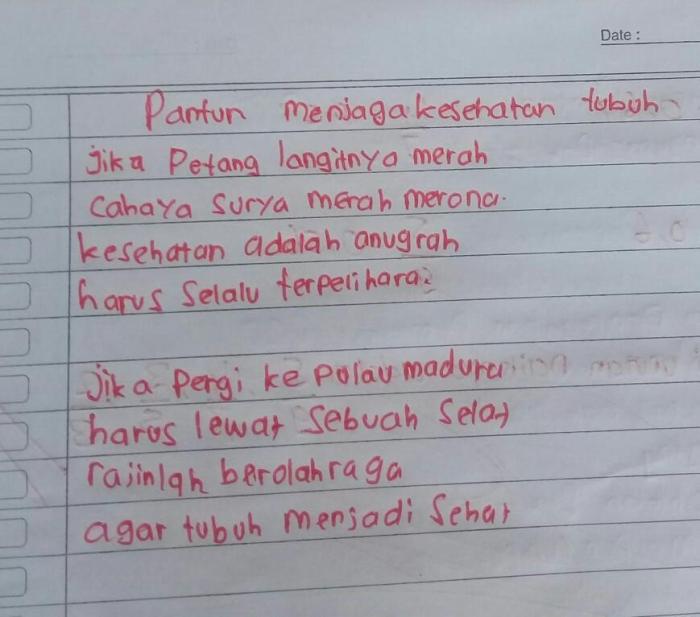 Date :
Pantun menjaga kesehatan tubuh
jika Petang langitnya merah
Cahaya Surya merah merona.
kesehatan adalah anugrah
harus Selalu terpelihara.
Jika Pergi ke Pulau madura
harus lewat Sebuah Selat
rajinlah berolahraga
agar tubuh menjadi Sehat